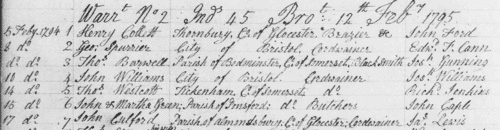 Warrt. No 2 Ind 45 Brot. 12th Feby 1795
5 Feby. 1794 1 Henry Collett Thornbury, C. of Glocester Brazier &c John Ford
8 do 2 Geo. Spurrier City of Bristol Cordwainer Edwd. F. Cann
do do 3 Thos. Barwell Parish of Bedminster, C. of Somerset, Blacksmith Jos. Gunning
10 do 4 John Williams City of Bristol Cordwainer Jos. Williams
14 do 5 Thos. Westcott Tickenham, C. of Somerset do Richd. Jenkins
15 do 6 John & Martha Green, Parish of do Butchers John Cable
17 do 7 John Parish of Almondsbury, C. of Glocester, Cordwainer Jas. Lewis